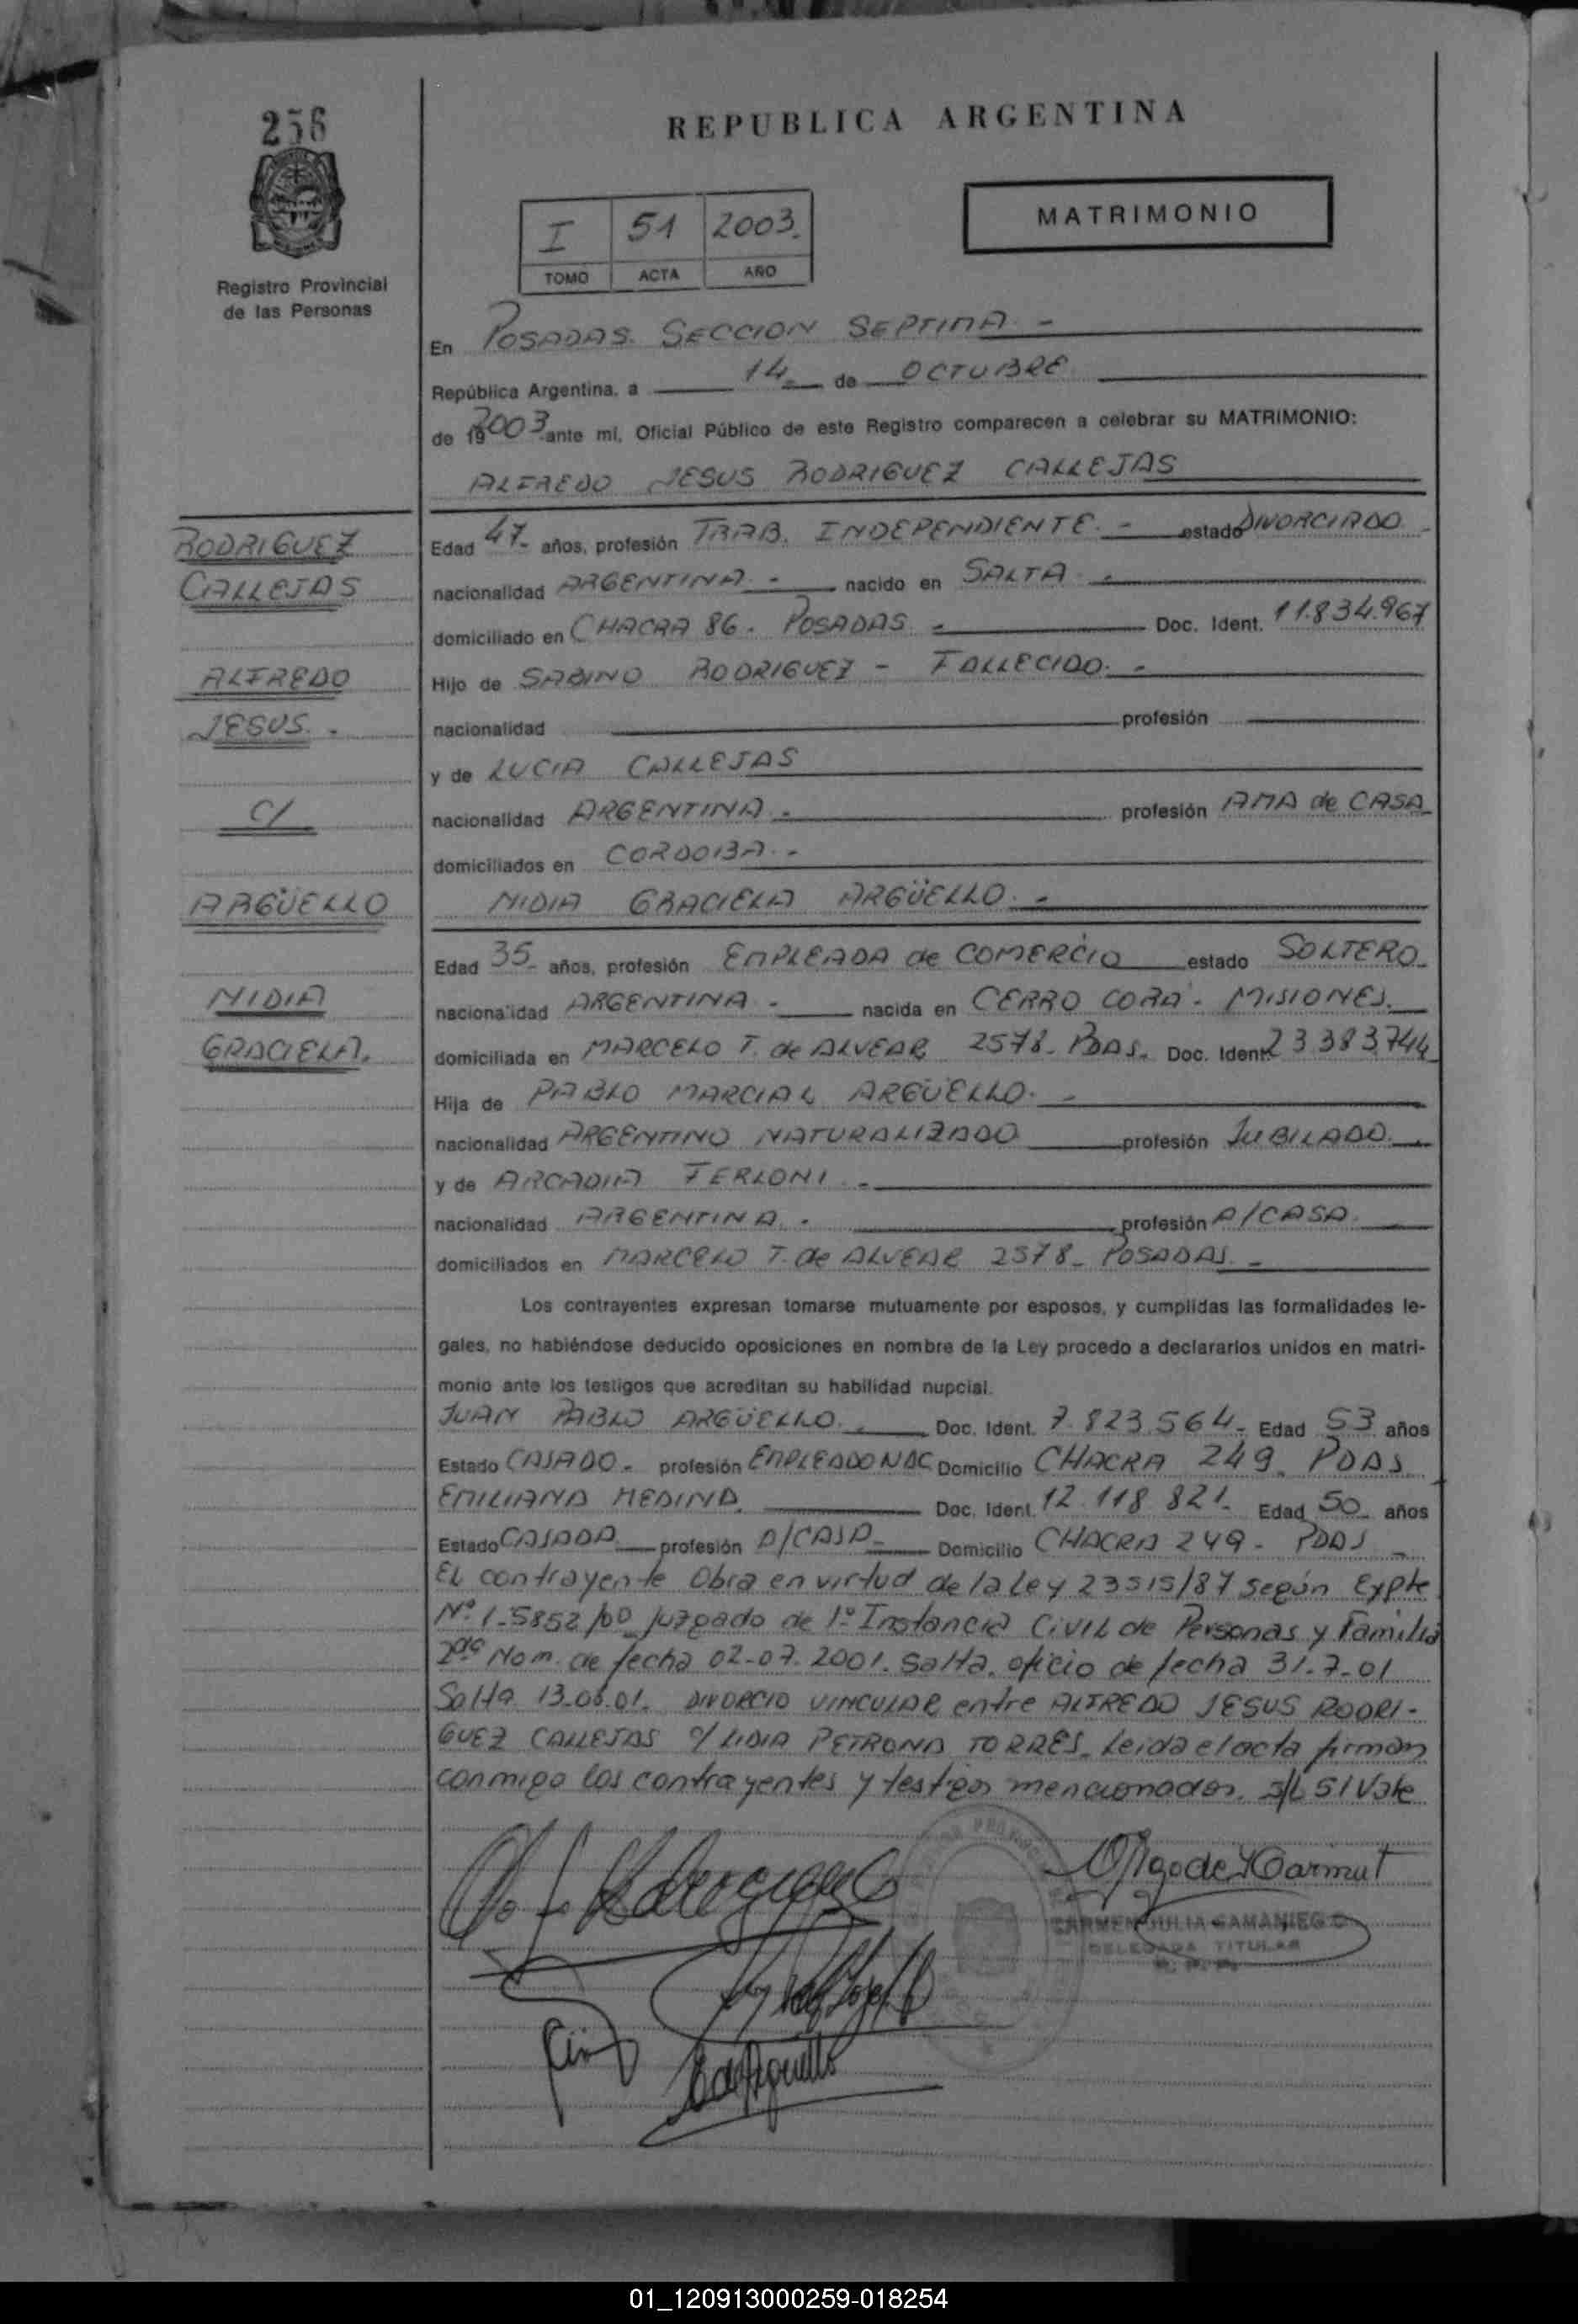 256
REPUBLICA ARGENTINA
MATRIMONIO
I 51 2003.
TOMO ACTA AÑO
Registro Provincial
de las Personas
En POSADAS. SECCION SEPTIMA -
República Argentina, a 14 de OCTUBRE
de 19 2003 ante mí, Oficial Público de este Registro comparecen a celebrar su MATRIMONIO:
ALFREDO JESUS RODRIGUEZ CALLEJAS
RODRIGUEZ
CALLEJAS
ALFREDO
JESUS. -
C/
ARGÜELLO
NIDIA
GRACIELA.
Edad 47- años, profesión TRAB. INDEPENDIENTE. - estado DIVORCIADO
nacionalidad ARGENTINA. - nacido en SALTA -
domiciliado en CHACRA 86. POSADAS - Doc. Ident. 11.834.967
Hijo de SABINO RODRIGUEZ - FALLECIDO. -
nacionalidad profesión
y de LUCIA CALLEJAS
nacionalidad ARGENTINA. - profesión AMA de CASA
domiciliados en CORDOBA. -
NIDIA GRACIELA ARGÜELLO. -
Edad 35- años, profesión EMPLEADA de COMERCIO estado SOLTERO
nacionalidad ARGENTINA - nacida en CERRO CORÁ - MISIONES.
domiciliada en MARCELO T. de ALVEAR 2578- PDAS. Doc. Ident. 23.383.744
Hija de PABLO MARCIAL ARGÜELLO. -
nacionalidad ARGENTINO NATURALIZADO profesión JUBILADO.
y de ARCADIA FERLONI. -
nacionalidad ARGENTINA. profesión A/CASA.
domiciliados en MARCELO T. de ALVEAR 2578- POSADAS. -
Los contrayentes expresan tomarse mutuamente por esposos, y cumplidas las formalidades le-
gales, no habiéndose deducido oposiciones en nombre de la Ley procedo a declararlos unidos en matri-
monio ante los testigos que acreditan su habilidad nupcial.
JUAN PABLO ARGÜELLO. Doc. Ident. 7.823.564- Edad 53 años
Estado CASADO- profesión EMPLEADO NAC Domicilio CHACRA 249. PDAS
EMILIANA MEDINA. Doc. Ident. 12.118.821- Edad 50 años
Estado CASADA profesión A/CASA- Domicilio CHACRA 249- PDAS -
EL contrayente Obra en virtud de la Ley 23515/87 según Expte
Nº 1-5852/00_ Juzgado de 1º Instancia CIVIL de Personas y Familia
2da Nom. de fecha 02-07-2001. Salta, oficio de fecha 31-7-01
Salta 13-08-01. DIVORCIO VINCULAR entre ALFREDO JESUS RODRI-
GUEZ CALLEJAS c/ LIDIA PETRONA TORRES. Leida el acta firman
conmigo los contrayentes y testigos mencionados. S/L 51 Vale
CARMEN JULIA SAMANIEGO
DELEGADA TITULAR
01_120913000259-018254